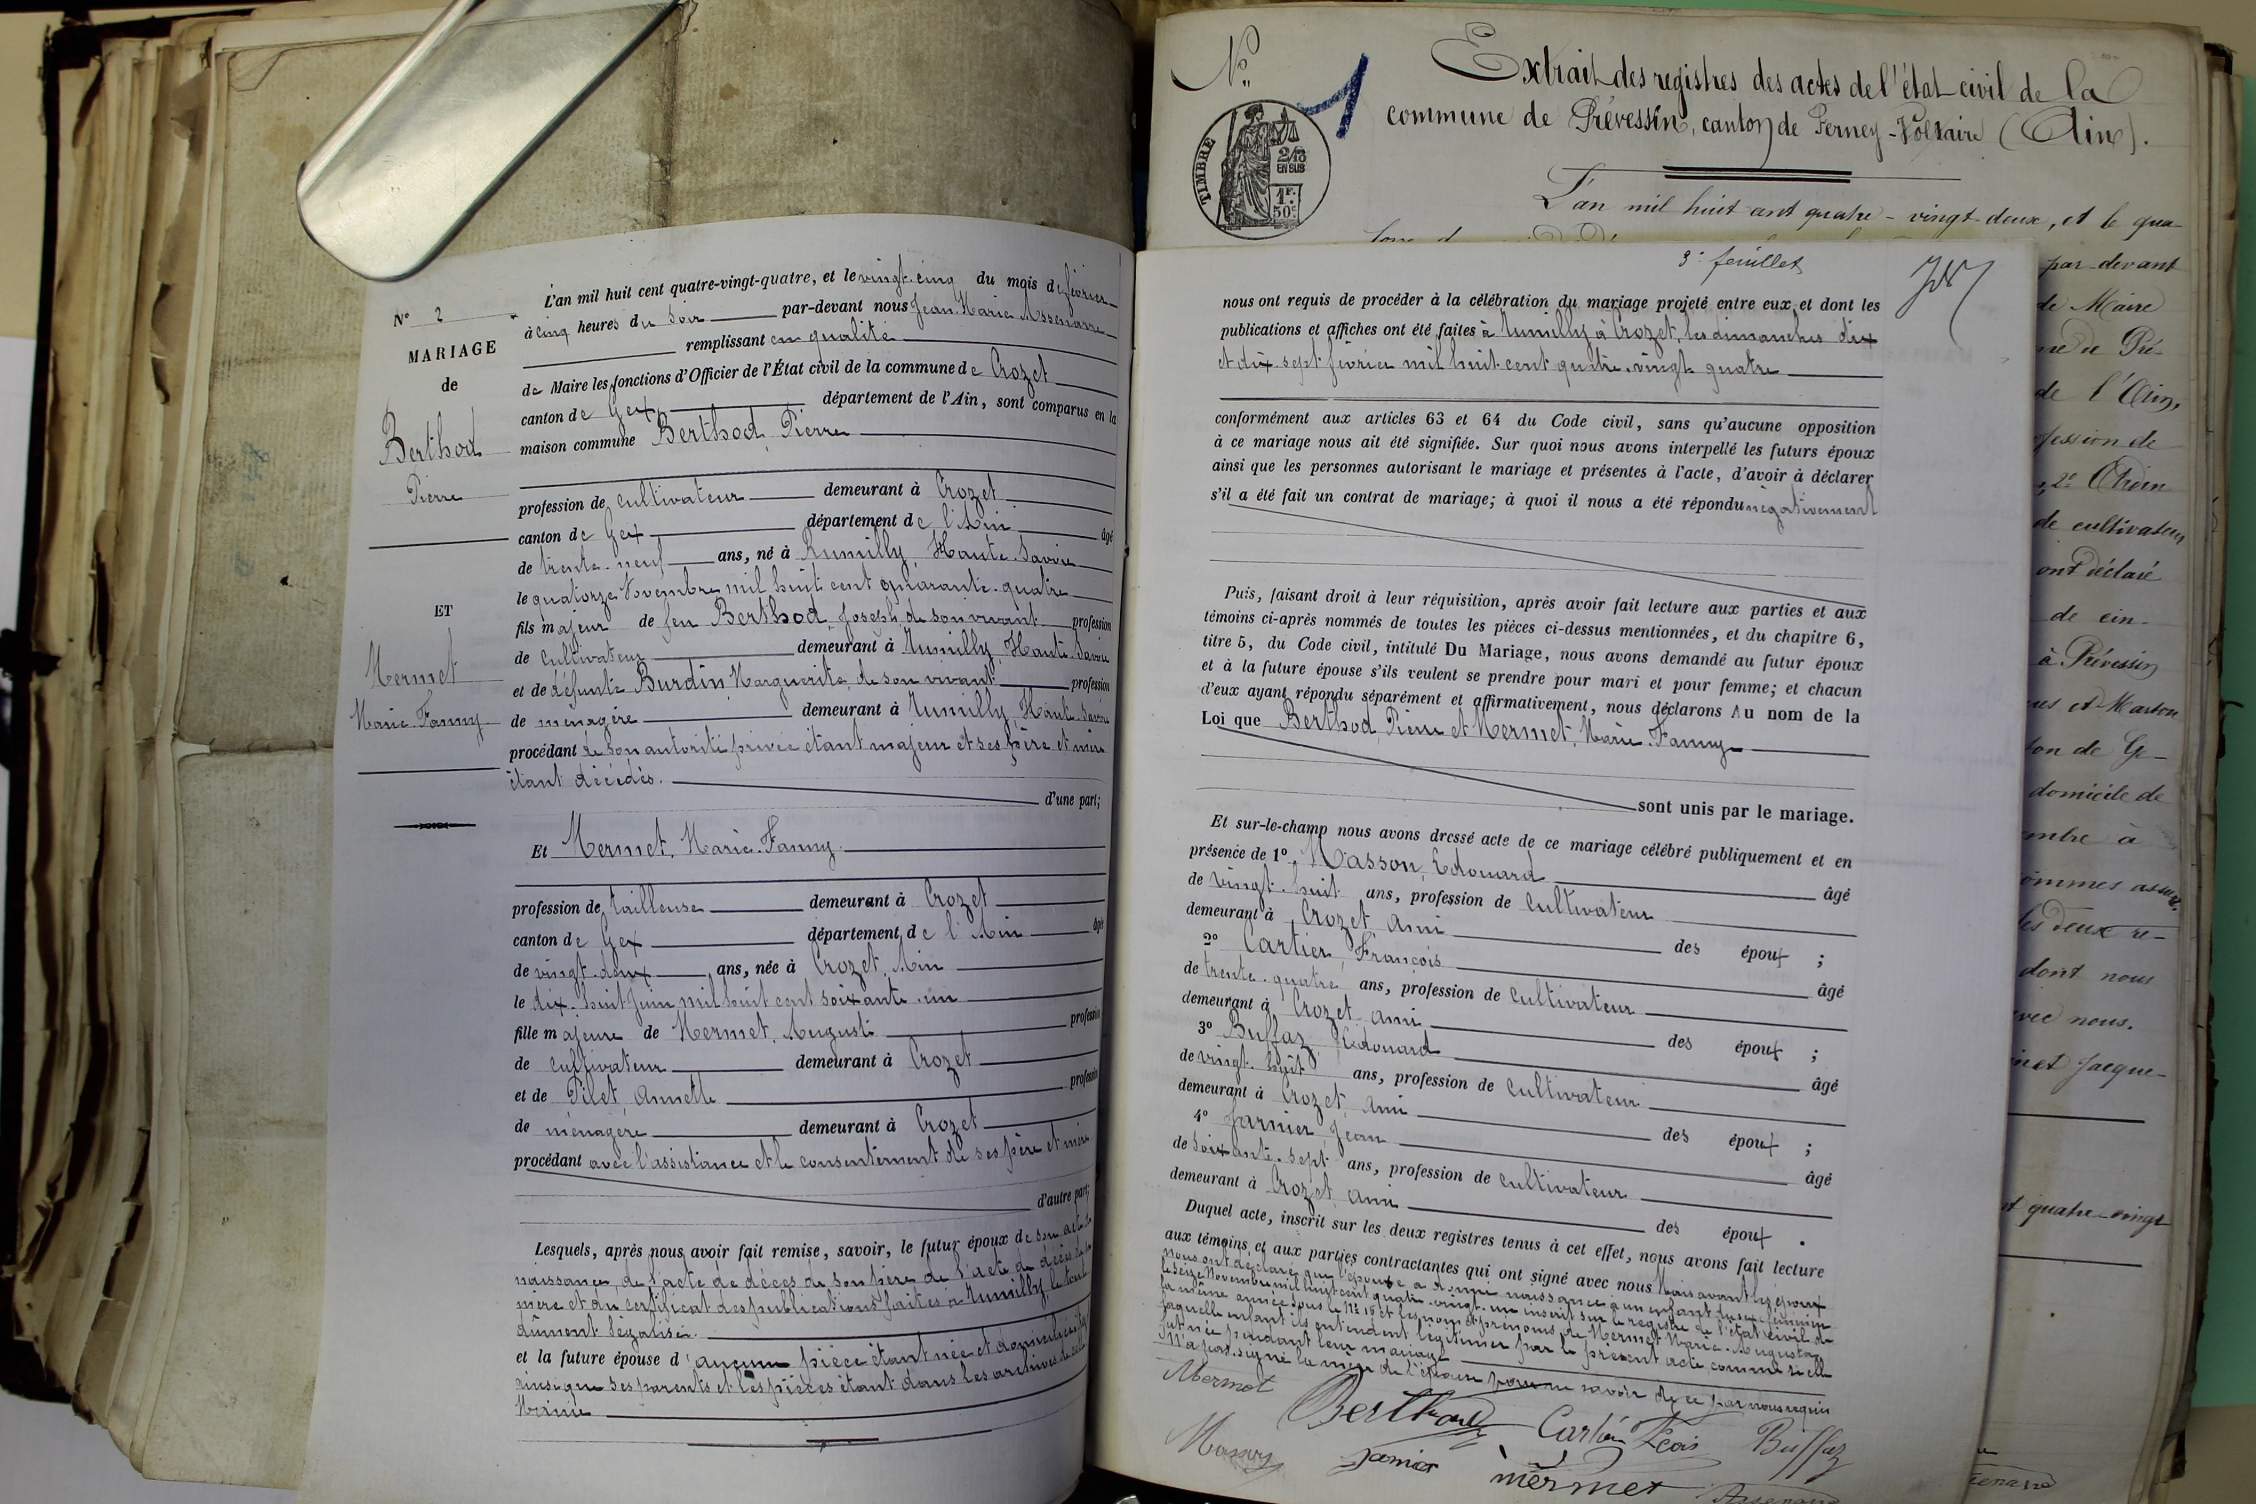 L'an mil huit cent quatre-vingt-quatre, et le vingt-cinq du mois de février
N° 2
à cinq heures du soir par-devant nous Jean Marie
MARIAGE
remplissant en qualité
de
de Maire les fonctions d'Officier de l'État civil de la commune de Crozet
canton de Gex département de l'Ain, sont comparus en la
Berthod
maison commune Berthod, Pierre
Pierre
profession de cultivateur demeurant à Crozet
canton de Gex département de l'Ain âgé
de trente-neuf ans, né à Rumilly, Haute-Savoie
le quatorze Novembre mil huit cent quarante-quatre
ET
fils majeur de feu Berthod, Joseph, de son vivant profession
de cultivateur demeurant à Rumilly, Haute-Savoie
Mermet
et de défunte Burdin, Marguerite, de son vivant profession
Marie-Fanny
de ménagère demeurant à Rumilly, Haute-Savoie
procédant de son autorité privée étant majeur et ses père et mère
étant décédés. d'une part;
Et Mermet, Marie-Fanny.
profession de tailleuse demeurant à Crozet
canton de Gex département de l'Ain âgée
de vingt-deux ans, née à Crozet, Ain
le dix-huit Juin mil huit cent soixante-un
fille majeure de Mermet, Auguste profession
de cultivateur demeurant à Crozet
et de Pilet, Annette profession
de ménagère demeurant à Crozet
procédant avec l'assistance et le consentement de ses père et mère
d'autre part;
Lesquels, après nous avoir fait remise, savoir, le futur époux de son acte de
naissance, de l'acte de décès de son père de l'acte de décès de sa
mère et du certificat des publications faites à Rumilly, le tout
dûment légalisé.
et la future épouse d'aucune pièce étant née et domiciliée ici
ainsi que ses parents et les pièces étant dans les archives de cette
Mairie
N°
1
Extrait des registres des actes de l'état civil de la
commune de Prévessin, canton de Ferney-Voltaire (Ain).
TIMBRE
2/10
EN SUS
1F.
50c
L'an mil huit cent quatre-vingt-deux, et le qua-
3e feuillet
nous ont requis de procéder à la célébration du mariage projeté entre eux et dont les
publications et affiches ont été faites à Rumilly, à Crozet, les dimanches dix
et dix-sept février mil huit cent quatre-vingt-quatre
conformément aux articles 63 et 64 du Code civil, sans qu'aucune opposition
à ce mariage nous ait été signifiée. Sur quoi nous avons interpellé les futurs époux
ainsi que les personnes autorisant le mariage et présentes à l'acte, d'avoir à déclarer
s'il a été fait un contrat de mariage; à quoi il nous a été répondu négativement
Puis, faisant droit à leur réquisition, après avoir fait lecture aux parties et aux
témoins ci-après nommés de toutes les pièces ci-dessus mentionnées, et du chapitre 6,
titre 5, du Code civil, intitulé Du Mariage, nous avons demandé au futur époux
et à la future épouse s'ils veulent se prendre pour mari et pour femme; et chacun
d'eux ayant répondu séparément et affirmativement, nous déclarons Au nom de la
Loi que Berthod, Pierre et Mermet, Marie-Fanny
sont unis par le mariage.
Et sur-le-champ nous avons dressé acte de ce mariage célébré publiquement et en
présence de 1° Masson, Edouard âgé
de vingt-huit ans, profession de cultivateur
demeurant à Crozet, ami des époux ;
2° Cartier, François âgé
de trente-quatre ans, profession de cultivateur
demeurant à Crozet, ami des époux ;
3° Buffaz, Edouard âgé
de vingt-huit ans, profession de cultivateur
demeurant à Crozet, ami des époux ;
4° Jarnier, Jean âgé
de soixante-sept ans, profession de cultivateur
demeurant à Crozet, ami des époux .
Duquel acte, inscrit sur les deux registres tenus à cet effet, nous avons fait lecture
aux témoins et aux parties contractantes qui ont signé avec nous Mais avant les époux
nous ont déclaré que l'épouse a donné naissance à un enfant du sexe féminin
le seize Novembre mil huit cent quatre-vingt-un inscrit sur le registre de l'état civil de
la même année sous le N° 16 et les nom et prénoms de Mermet Marie-Augusta
laquelle enfant ils entendent légitimer par le présent acte comme si elle
fut née pendant leur mariage
N'a pas signé la mère de l'épouse pour ne savoir de ce par nous requis
Mermet
Berthod
Cartier Fcois
Buffaz
Masson
Jarnier
mermet
par-devant
de Maire
de Pré-
de l'Ain,
profession de
2e
de cultivateur
ont déclaré
de cin-
à Prévessin
et Marton
de Ge-
domicile de
à
sommes
les deux re-
dont nous
avec nous.
Jacque-
quatre-vingt